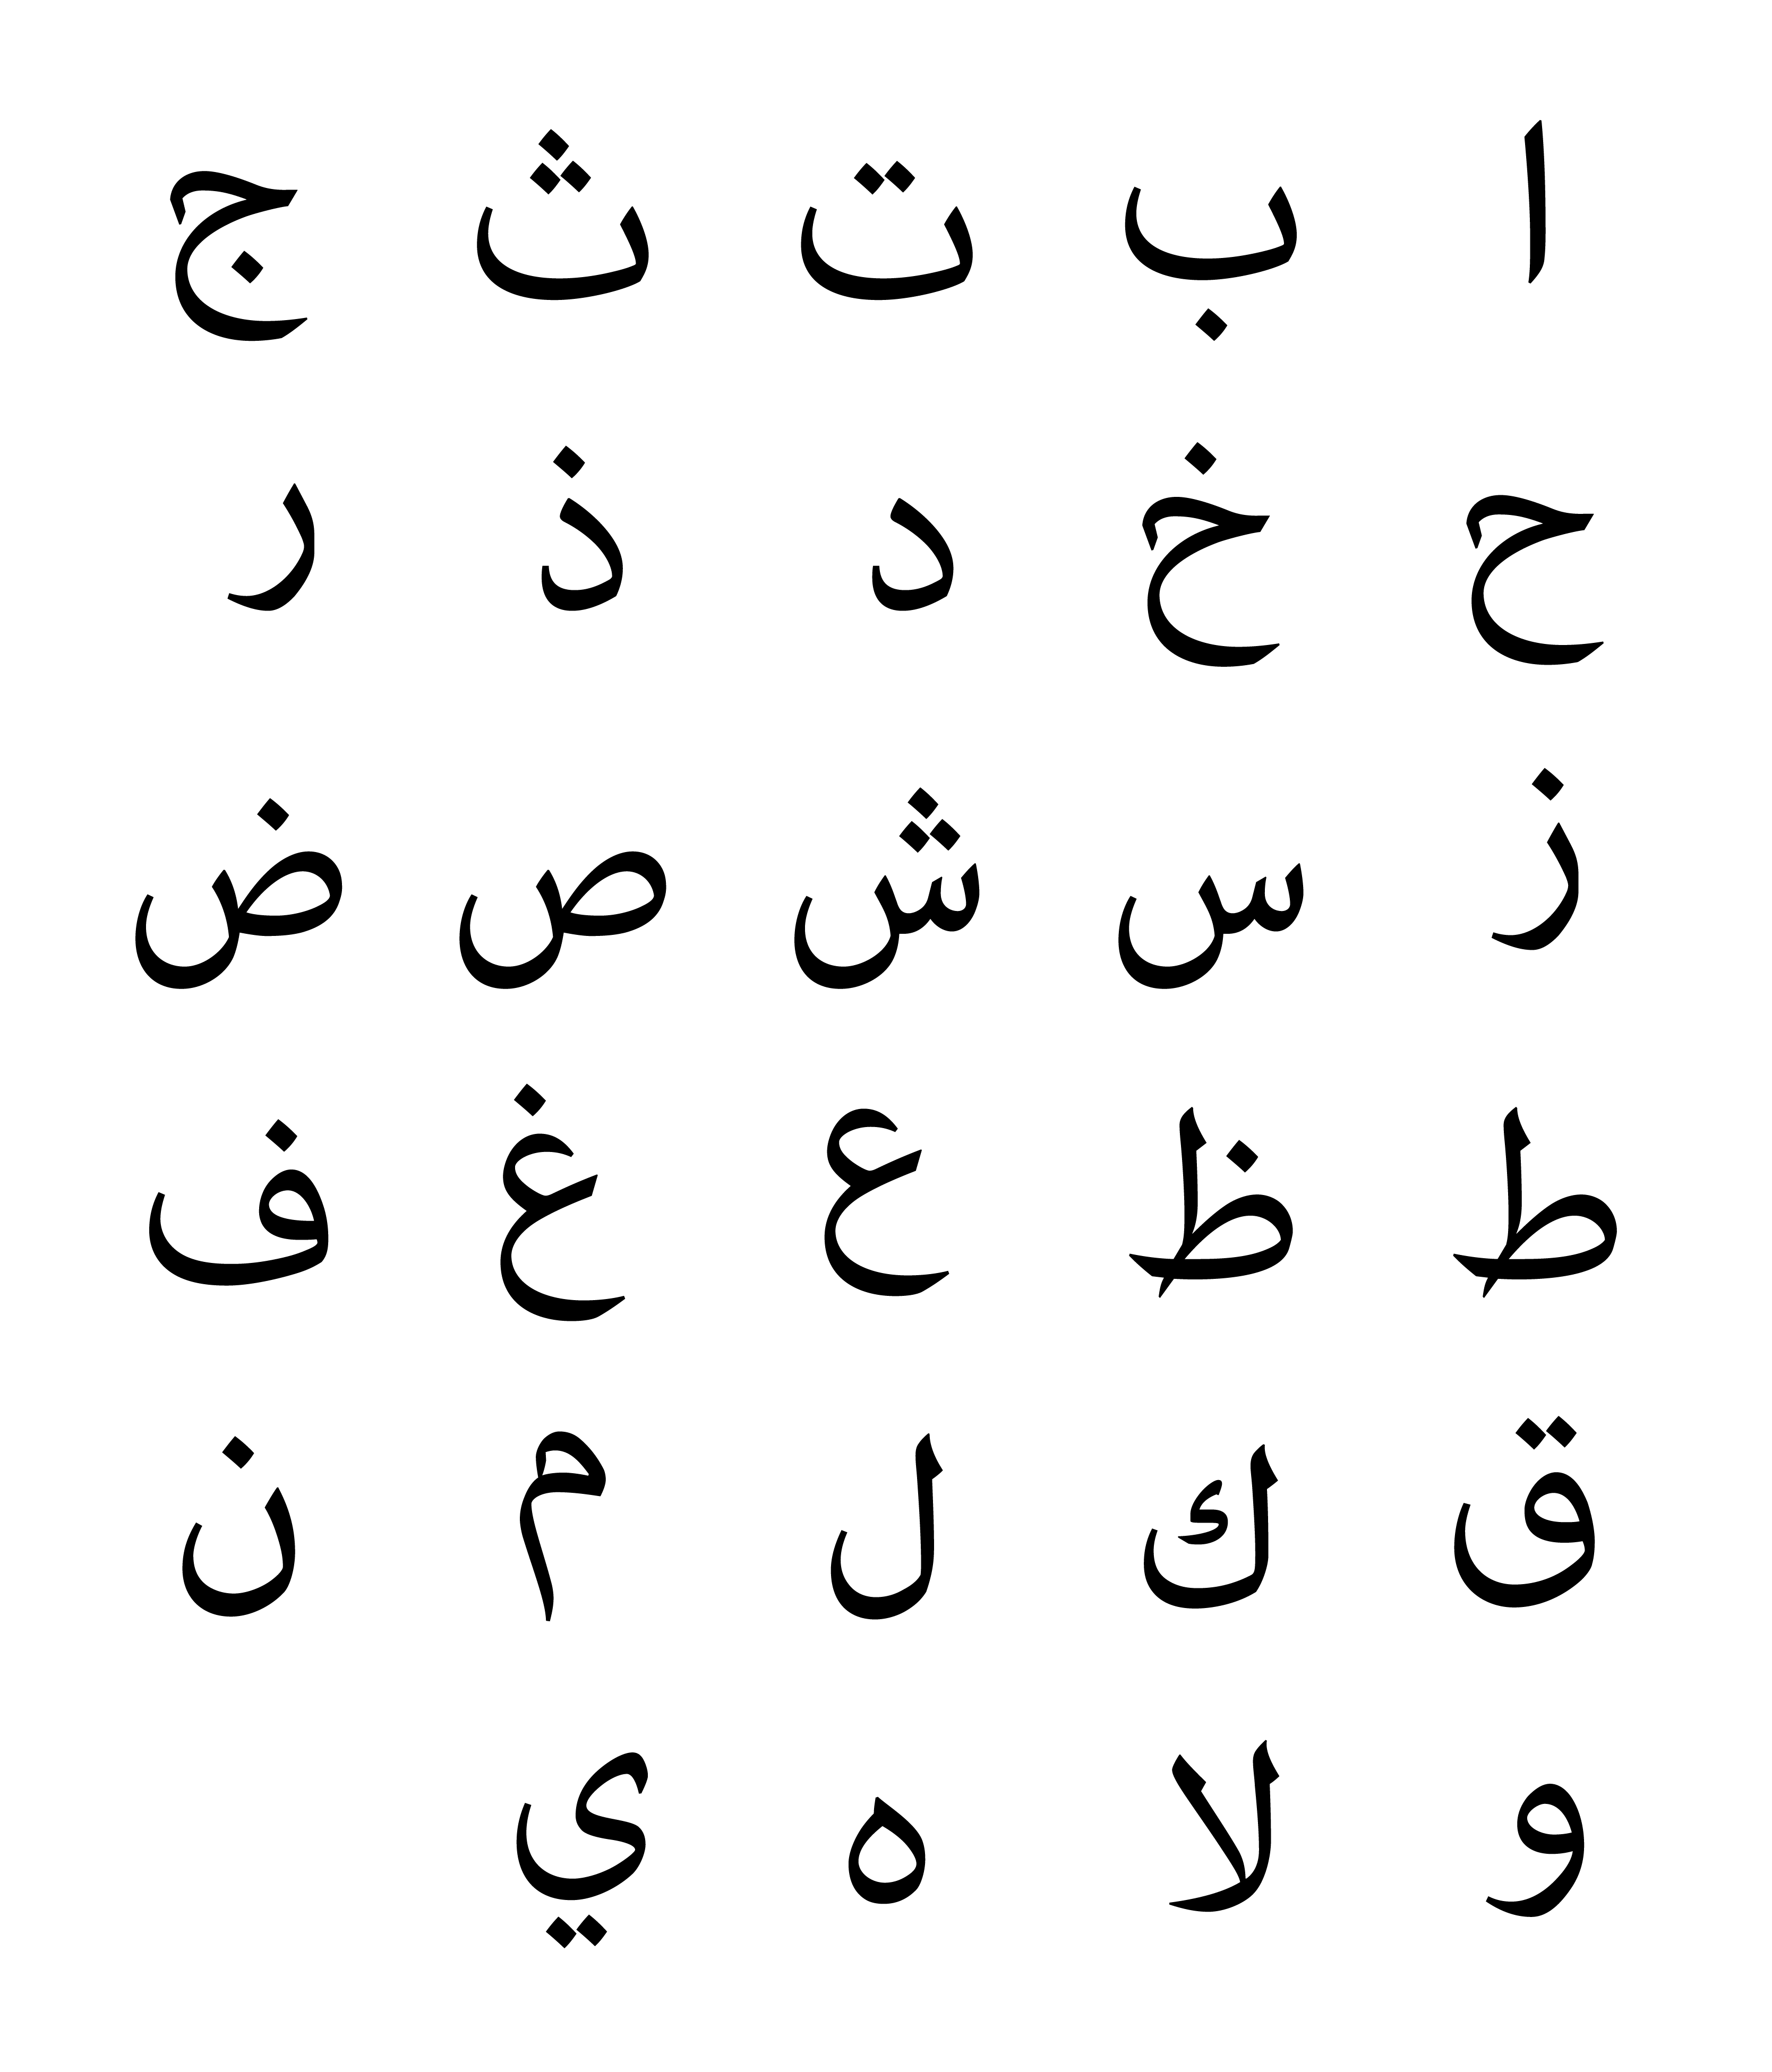 ا ب ت ث ج
ح خ د ذ ر
ز س ش ص ض
ط ظ ع غ ف
ق ك ل م ن
و لا ه ي